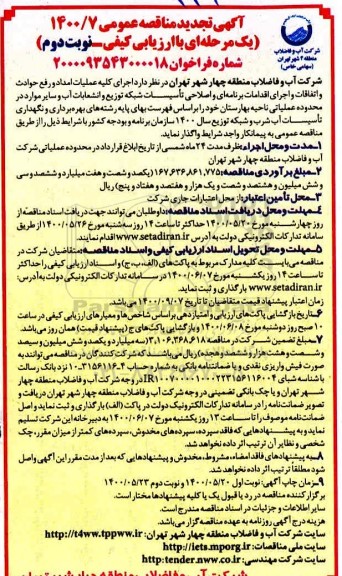 آگهی تجدید مناقصه عمومی ۱۴۰۰/۷
(یک مرحله‌ای با ارزیابی کیفی-نوبت دوم)
شماره فراخوان ۲۰۰۰۰۹۳۵۴۳۰۰۰۰۱۸
شرکت آب و فاضلاب
منطقه ۴ شهر تهران
(سهامی خاص)
شرکت آب و فاضلاب منطقه چهار شهر تهران در نظر دارد اجرای کلیه عملیات امداد و رفع حوادث
و اتفاقات و اجرای اقدامات برنامه‌ای و اصلاحی تأسیسات شبکه توزیع و انشعابات آب و سایر موارد در
محدوده عملیاتی ناحیه بهارستان خود را براساس فهرست بهای پایه رشته‌های بهره‌برداری و نگهداری
تأسیسات آب شرب و شبکه توزیع سال ۱۴۰۰ سازمان برنامه و بودجه کشور با شرایط ذیل را از طریق
مناقصه عمومی به پیمانکار واجد شرایط واگذار نماید.
۱-مدت و محل اجراء: ظرف مدت ۲۴ ماه شمسی از تاریخ ابلاغ قرارداد در محدوده عملیاتی شرکت
آب و فاضلاب منطقه چهار شهر تهران
۲-مبلغ برآوردی مناقصه: ۱۶۷,۶۳۶,۸۶۱,۷۷۵ (یکصد و شصت و هفت میلیارد و ششصد و سی
و شش میلیون و هشتصد و شصت و یک هزار و هفتصد و هفتاد و پنج) ریال
۳-محل تأمین اعتبار: از محل اعتبارات جاری شرکت
۴-مهلت و محل دریافت اسناد مناقصه: داوطلبان می‌توانند جهت دریافت اسناد مناقصه از
روز چهارشنبه مورخ ۱۴۰۰/۰۵/۲۰ حداکثر تا ساعت ۱۴ روز سه‌شنبه مورخ ۱۴۰۰/۰۵/۲۶ از طریق
سامانه تدارکات الکترونیکی دولت به آدرس www.setadiran.ir اقدام نمایند.
۵-مهلت و محل تحویل اسناد ارزیابی کیفی و اسناد مناقصه: متقاضیان شرکت در
مناقصه می‌بایست کلیه مدارک مربوط به پاکت‌های (الف، ب، ج) و اسناد ارزیابی کیفی را حداکثر
تا ساعت ۱۴ روز یکشنبه مورخ ۱۴۰۰/۰۶/۰۷ در سامانه تدارکات الکترونیکی دولت به آدرس:
www.setadiran.ir بارگذاری و ثبت نماید.
زمان اعتبار پیشنهاد قیمت متقاضیان تا تاریخ ۱۴۰۰/۰۹/۰۷ می‌باشد.
۶-تاریخ بازگشایی پاکت‌های ارزیابی و امتیازدهی براساس شاخص‌ها و معیارهای ارزیابی کیفی در ساعت
۱۰ صبح روز دوشنبه مورخ ۱۴۰۰/۰۶/۰۸ و بازگشایی پاکت‌های ج (پیشنهاد قیمت) همان روز می‌باشد.
۷-مبلغ تضمین شرکت در مناقصه ۳,۱۰۶,۳۶۸,۶۱۸ (سه میلیارد و یکصد و شش میلیون و سیصد
و شصت و هشت هزار و ششصد و هجده) ریال می‌باشد که شرکت کنندگان در مناقصه می‌توانند به
صورت فیش واریزی نقدی و یا ضمانتنامه بانکی به شماره حساب ۴-۳۱۵۶۱۱۶-۱۰ نزد بانک رسالت
در وجه شرکت آب و فاضلاب منطقه چهار
شهر تهران و یا چک بانکی تضمینی در وجه شرکت آب و فاضلاب منطقه چهار شهر تهران دریافت و
تصویر ضمانت‌نامه را در سامانه تدارکات الکترونیک دولت در پاکت (الف) بارگذاری و ثبت نماید و اصل
ضمانت‌نامه موصوف را تا ساعت ۱۴ روز یکشنبه مورخ ۱۴۰۰/۰۶/۰۷ به دبیرخانه این شرکت تسلیم
نماید و به پیشنهادهایی که فاقد سپرده، سپرده‌های مخدوش، سپرده‌های کمتر از میزان مقرر، چک
شخصی و نظایر آن ترتیب اثر داده نخواهد شد.
۸-به پیشنهادهای فاقد امضاء، مشروط، مخدوش و پیشنهادهایی که بعد از مدت مقرر این آگهی واصل
شود مطلقاً ترتیب اثر داده نخواهد شد.
۹-زمان چاپ آگهی: نوبت اول ۱۴۰۰/۰۵/۲۰ و نوبت دوم ۱۴۰۰/۰۵/۲۳
برگزار کننده مناقصه در رد یا قبول یک یا کلیه پیشنهادها مختار است.
سایر اطلاعات و جزئیات در اسناد مناقصه مندرج است.
هزینه درج آگهی روزنامه به عهده مناقصه‌گزار می‌باشد.
سایت شرکت آب و فاضلاب منطقه چهار شهر تهران: http://t4ww.tppww.ir
سایت ملی مناقصات: http://iets.mporg.ir
سایت شرکت مهندسی: http:tender.nww.co.ir